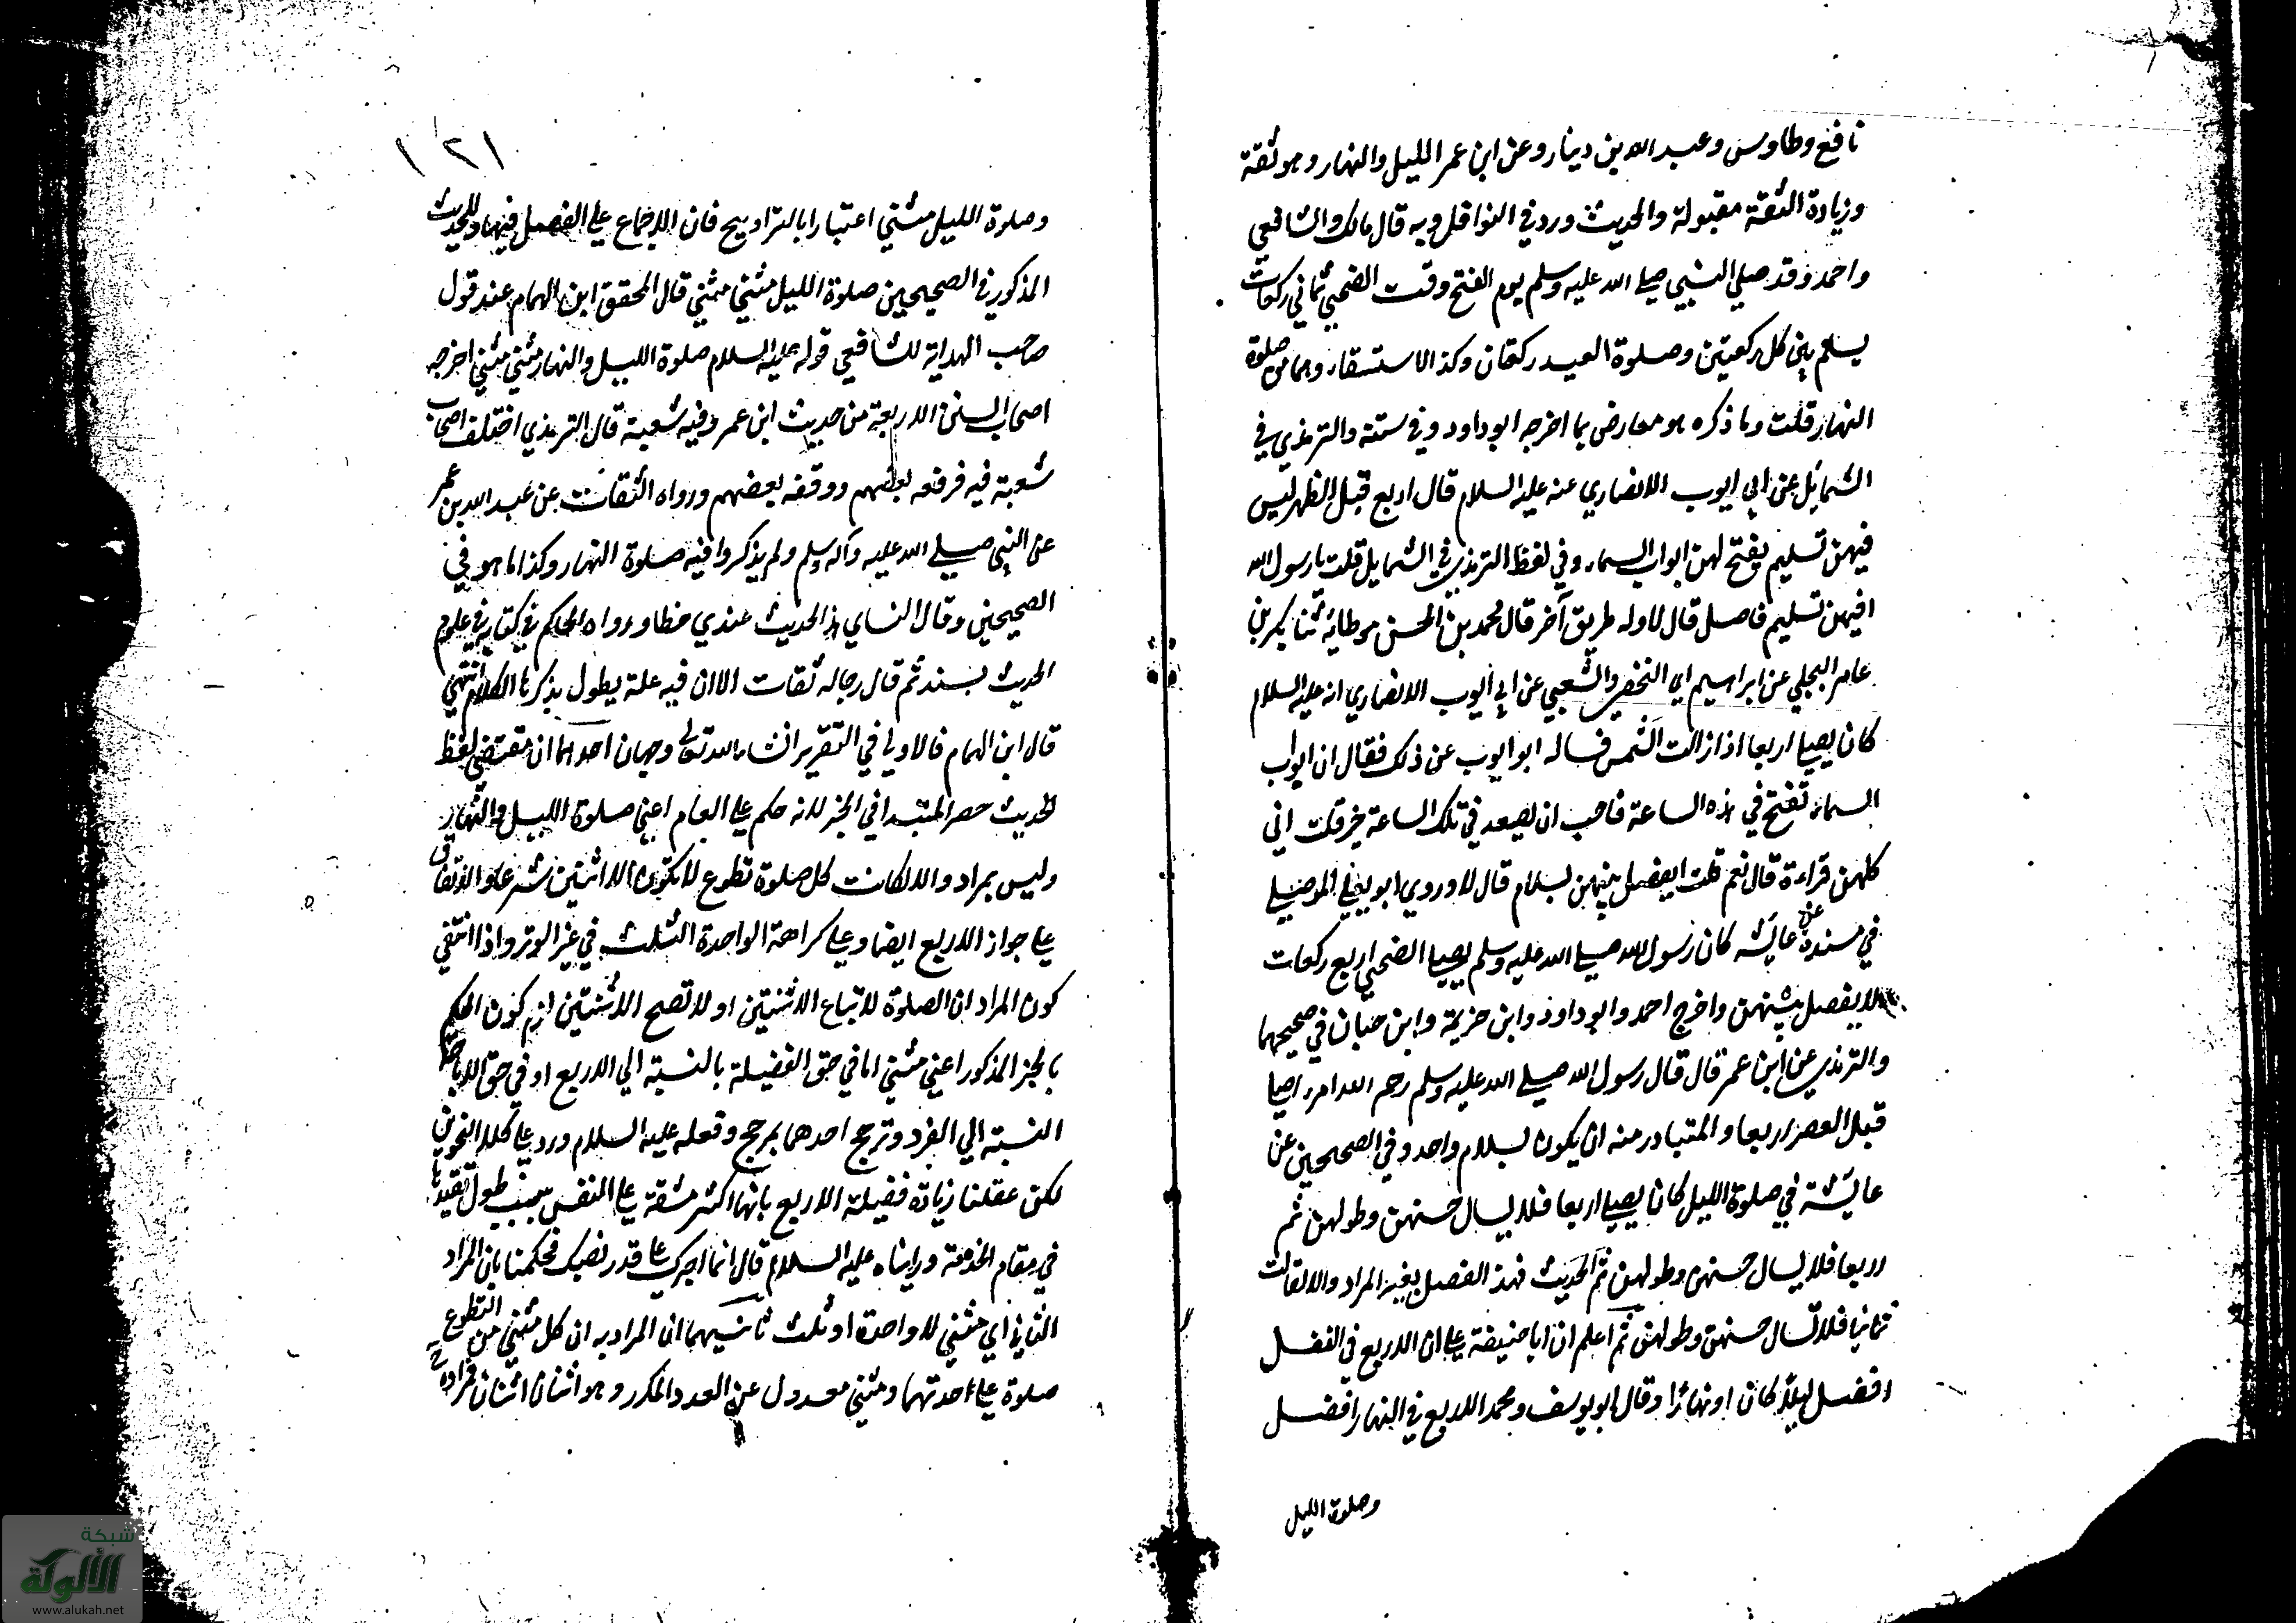 نافع وطاوس وعبد الله بن دينار وعن ابن عمر الليل والنهار وهو ثقة
وزيادة الثقة مقبولة والحديث ورد في النوافل وبه قال مالك والشافعي
واحمد وقد صلي النبي صلي الله عليه وسلم يوم الفتح وقت الضحي ثماني ركعات
يسلم بين كل ركعتين وصلوة العيد ركعتان وكذا الاستسقاء وهما من صلوة
النهار قلت وما ذكره هو معارض بما اخرجه ابو داود وفي سننه والترمذي في
الشمايل عن ابي ايوب الانصاري عنه عليه السلام قال اربع قبل الظهر ليس
فيهن تسليم يفتح لهن ابواب السماء وفي لفظ الترمذي في الشمايل قلت يا رسول الله
افيهن تسليم فاصل قال لا وله طريق آخر قال محمد بن الحسن موطائه ثنا بكر بن
عامر البجلي عن ابراهيم اي النخعي والشعبي عن ابي ايوب الانصاري انه عليه السلام
كان يصلي اربعا اذا زالت الشمس فساله ابو ايوب عن ذلك فقال ان ابواب
السماء تفتح في هذه الساعة فاحب ان يصعد في تلك الساعة خير قلت اني
كلهن قراءة قال نعم قلت ايفصل بينهن بسلام قال لا وروي ابو يعلي الموصلي
في مسنده عن عايشه كان رسول الله صلي الله عليه وسلم يصلي الضحي اربع ركعات
لا يفصل بينهن واخرج احمد وابو داود وابن خزيمة وابن حبان في صحيحهما
والترمذي عن ابن عمر قال قال رسول الله صلي الله عليه وسلم رحم الله امرء اصلي
قبل العصر اربعا والمتبادر منه ان يكون بسلام واحد وفي الصحيحين عن
عايشة في صلوة الليل كان يصلي اربعا فلا يسال حسنهن وطولهن ثم
اربعا فلا يسال حسنهن وطولهن ثم الحديث فهذا الفصل يفيد المراد والا لقالت
ثمانيا فلا تسال حسنهن وطولهن ثم اعلم ان ابا حنيفة علي ان الاربع في الفضل
افضل ليلا كان او نهارا وقال ابو يوسف ومحمد الاربع في النهار افضل
وصلوة الليل
١٢١
وصلوة الليل مثني اعتبارا بالتراويح فان الاجماع علي الفصل فيها وللحديث
المذكور في الصحيحين صلوة الليل مثني مثني قال المحقق ابن الهمام عند قول
صاحب الهداية للشافعي قوله عليه السلام صلوة الليل والنهار مثني مثني اخرجه
اصحاب السنن الاربعة من حديث ابن عمر وفيه شعبة قال الترمذي اختلف اصحاب
شعبة فيه فرفعه بعضهم ووقفه بعضهم ورواه الثقات عن عبد الله بن عمر
عن النبي صلي الله عليه وآله وسلم ولم يذكروا فيه صلوة النهار وكذا ما هو في
الصحيحين وقال النساي هذا الحديث عندي خطا ورواه الحاكم في كتابه في علوم
الحديث بسند ثم قال رجاله ثقات الا ان فيه علة يطول بذكرها الكلام انتهي
قال ابن الهمام فالاولي في التقرير انشاء الله تعالي وجهان احدهما ان مقتضي لفظ
الحديث حصر المبتدا في الخبر لانه حكم علي العام اعني صلوة الليل والنهار
وليس بمراد والا لكانت كل صلوة تطوع لا تكون الا اثنتين شرعا والاتفاق
علي جواز الاربع ايضا وعلي كراهة الواحدة الثلث في غير الوتر واذا انتفي
كون المراد ان الصلوة لا تباع الا ثنتين او لا تصح الا ثنتين لزم كون الحكم
بالخبر المذكور اعني مثني اما في حق الفضيلة بالنسبة الي الاربع او في حق الاباحة
النسبة الي الفرد وترجح احدهما بمرجح وفعله عليه السلام ورد علي كلا النحوين
لكن عقلنا زيادة فضيلة الاربع بانها اكثر مشقة علي النفس بسبب طول تقيدها
في مقام الخدمة وراينا ه عليه السلام قال انما اجرك علي قدر نصبك فحكمنا بان المراد
الثاني اي مثني لا واحدة او ثلث ثانيهما ان المراد به ان كل مثني من التطوع
صلوة علي احدتهما ومثني معدول عن العدد المكرر وهو اثنان اثنان فمراده ح